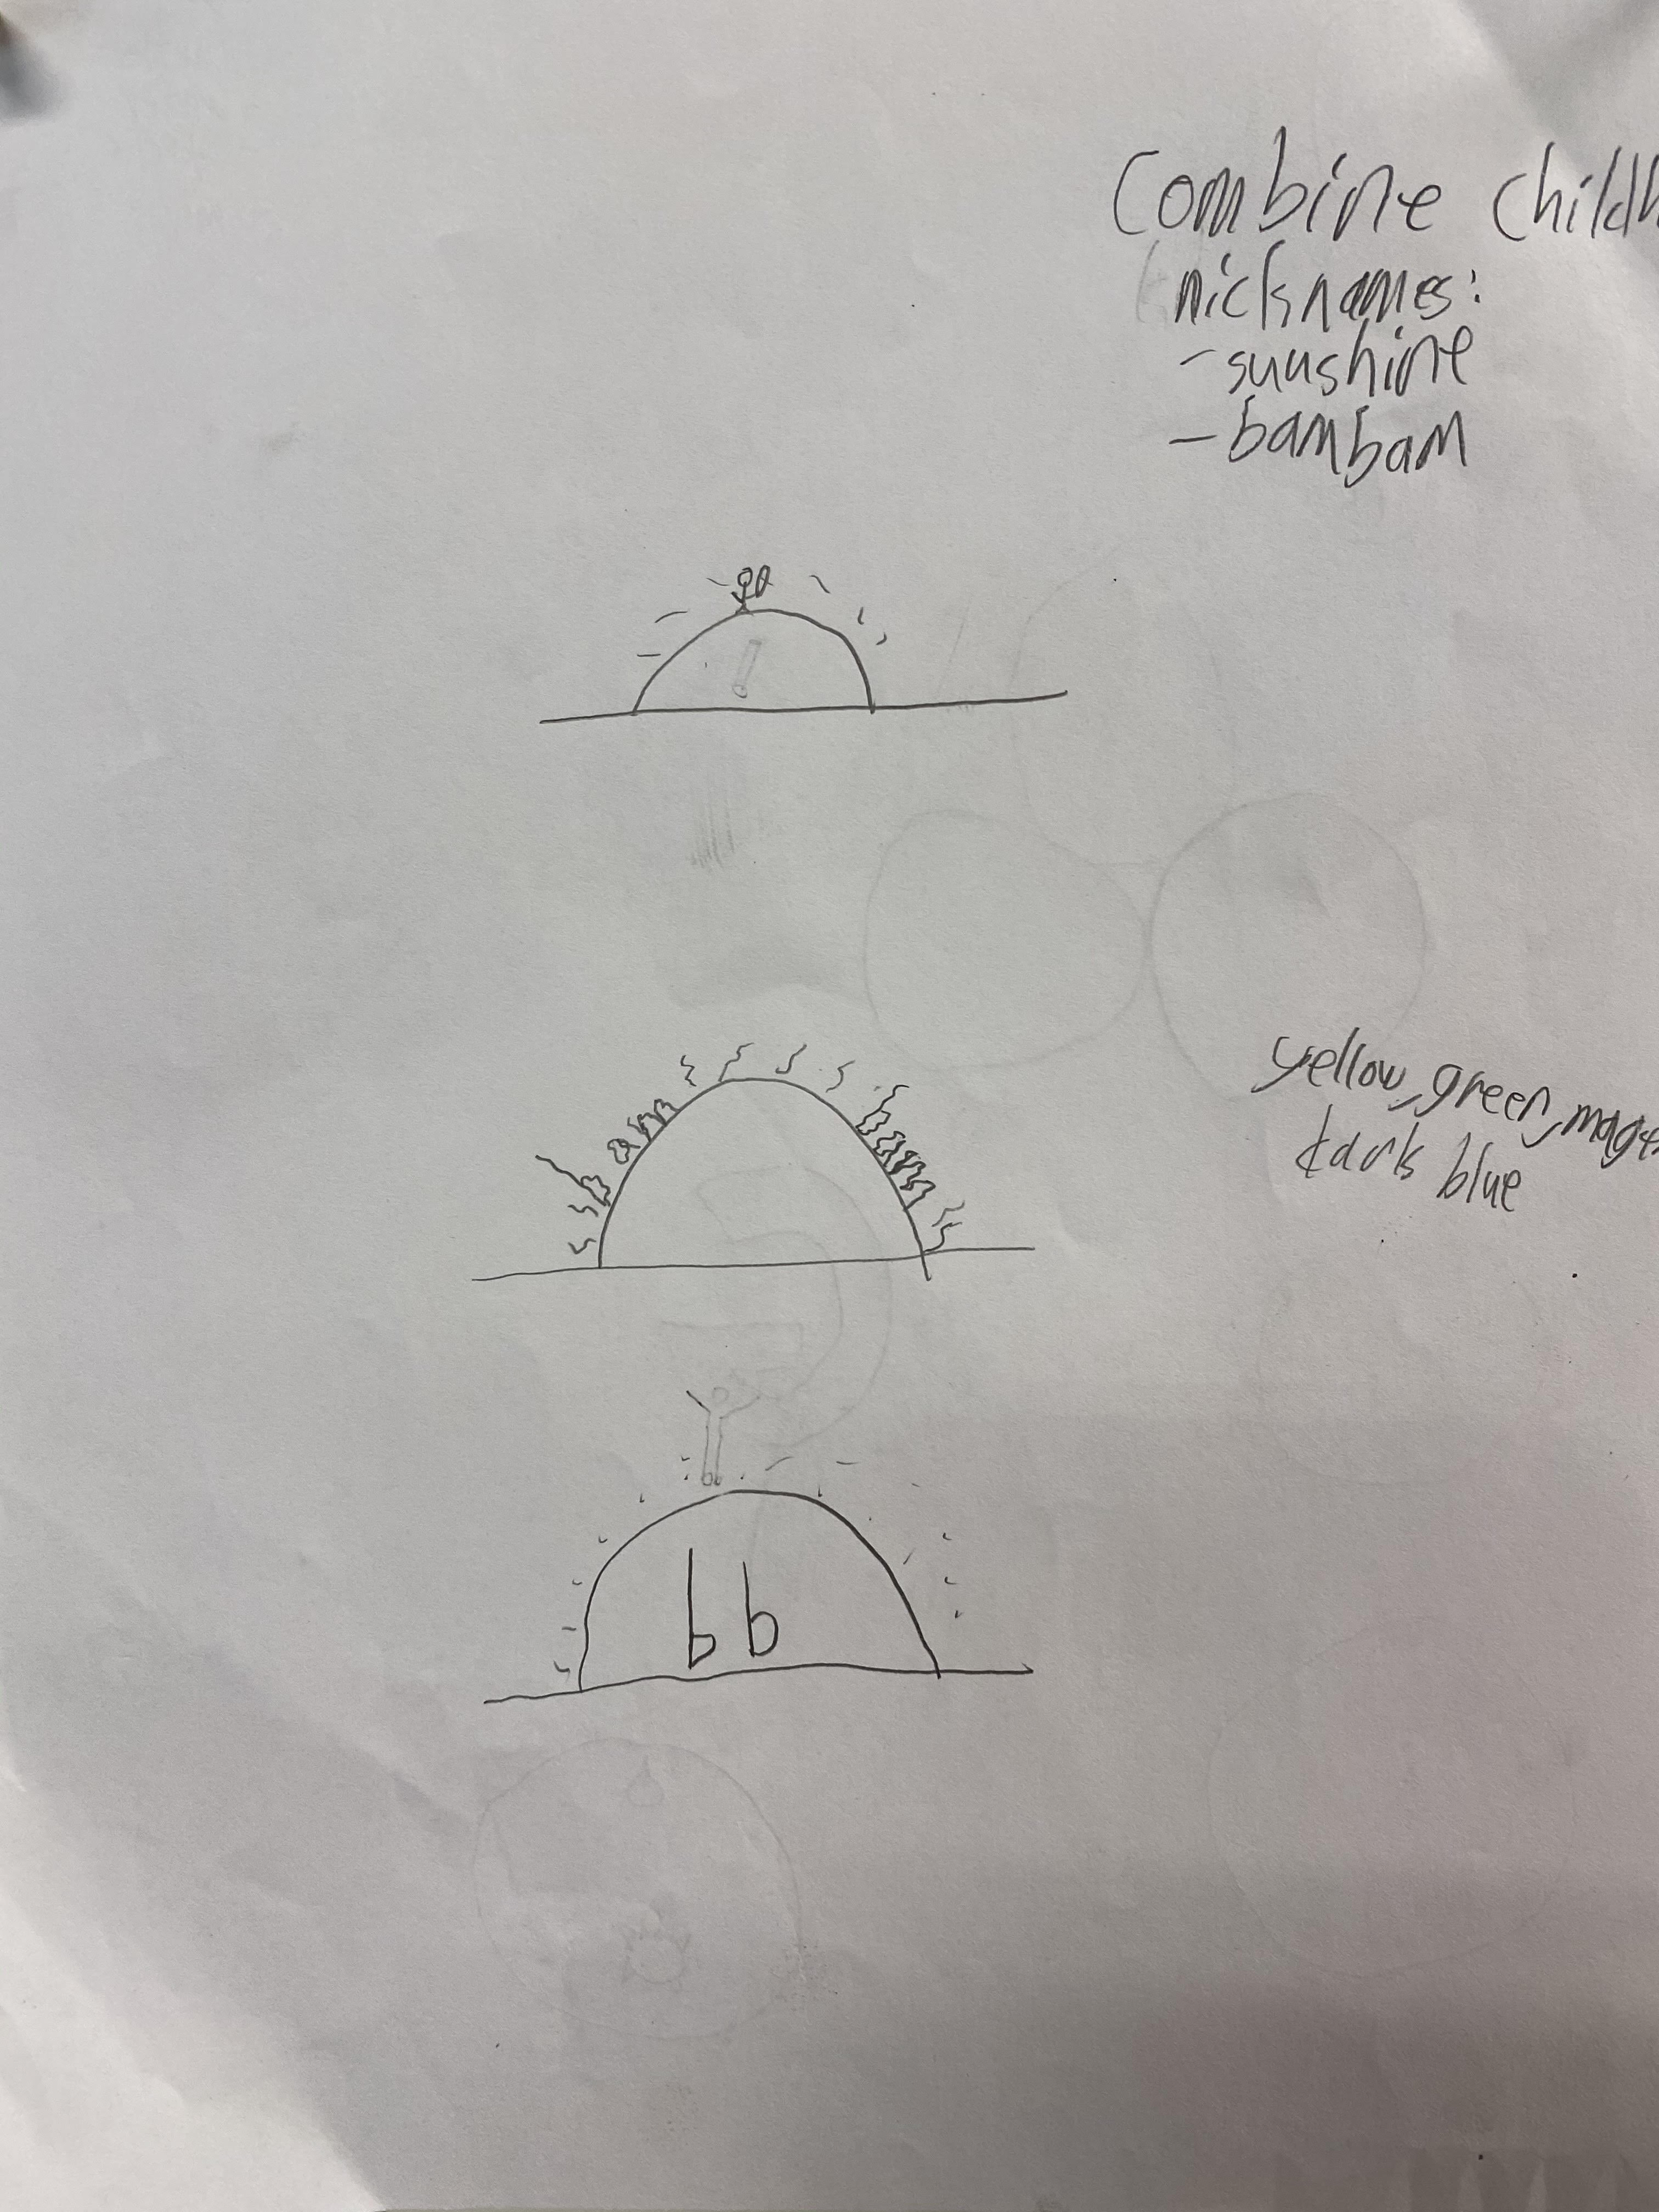 Combine childh
nicknames:
- sunshine
- bambam
yellow, green, mage
dark blue
bb